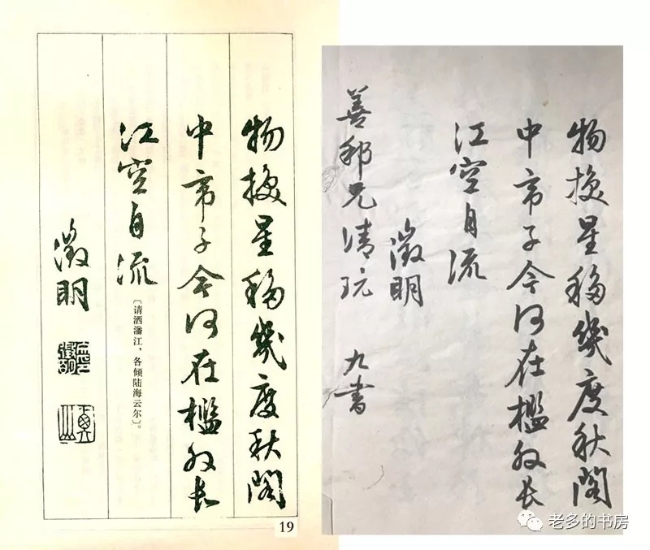 物换星移几度秋阁
中帝子今何在槛外长
江空自流
〔请洒潘江，各倾陆海云尔〕。
徵明
19
物换星移几度秋阁
中帝子今何在槛外长
江空自流
徵明
善邦兄清玩 九书
老多的书房